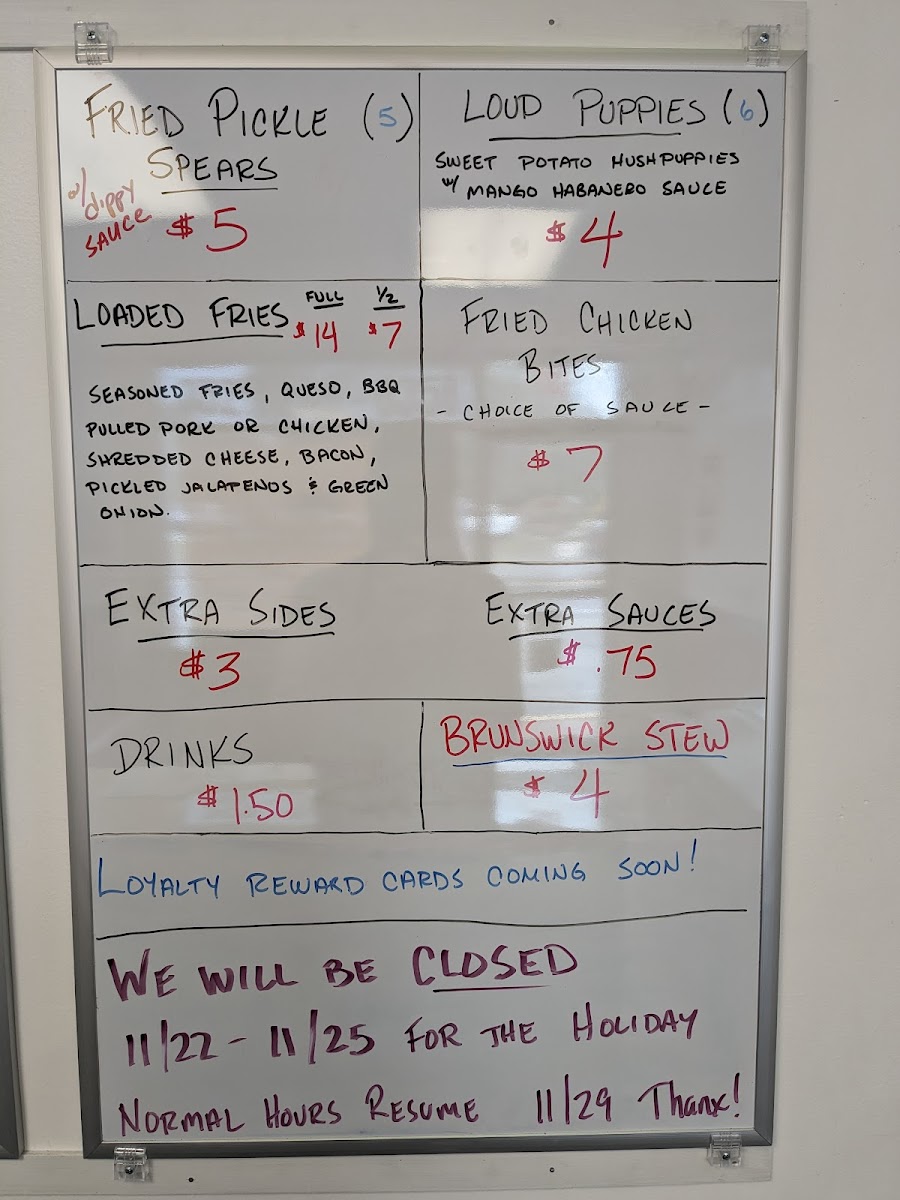 FRIED PICKLE (5)
SPEARS
w/ dippy
SAUCE
$5
LOUD PUPPIES (6)
SWEET POTATO HUSHPUPPIES
w/ MANGO HABANERO SAUCE
$4
LOADED FRIES
FULL
$14
1/2
$7
SEASONED FRIES, QUESO, BBQ
PULLED PORK OR CHICKEN,
SHREDDED CHEESE, BACON,
PICKLED JALAPENOS & GREEN
ONION.
FRIED CHICKEN
BITES
- CHOICE OF SAUCE -
$7
EXTRA SIDES
$3
EXTRA SAUCES
$.75
DRINKS
$1.50
BRUNSWICK STEW
$4
LOYALTY REWARD CARDS COMING SOON!
WE WILL BE CLOSED
11/22 - 11/25 FOR THE HOLIDAY
NORMAL HOURS RESUME 11/29 Thanx!